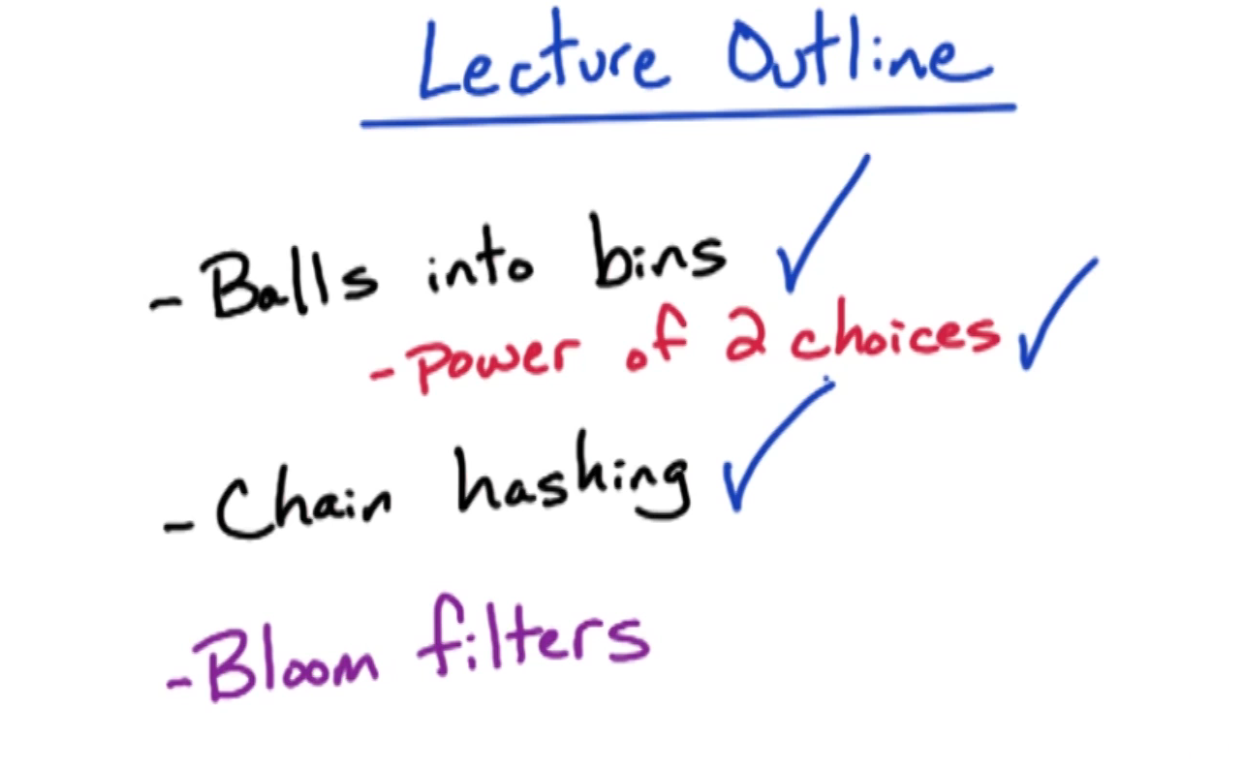 Lecture Outline
- Balls into bins ✓
- Power of 2 choices ✓
- Chain hashing ✓
- Bloom filters